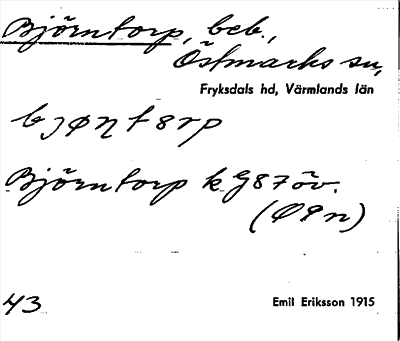 Björntorp, beb.,
Östmarks sn,
Fryksdals hd, Värmlands län
bjøɳtørp
Björntorp k G87 öv.
(Ø 9 n)
43
Emil Eriksson 1915